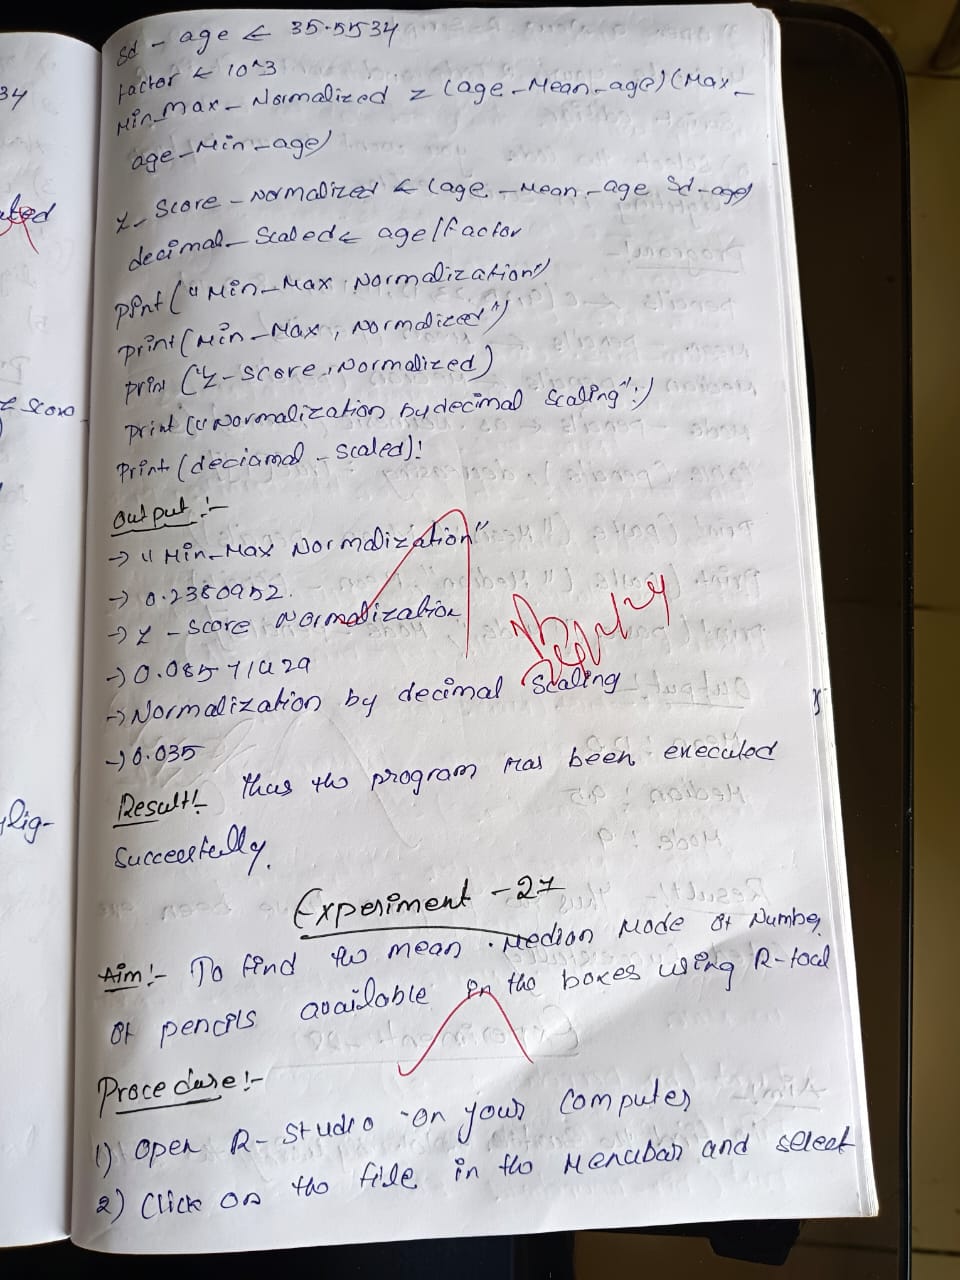 34
ated
z Score
lig-
Sd - age ← 35.5534
factor ← 10^3
Min_Max_Normalized = (age_Mean_age) (Max_
age_Min_age)
Z_Score_Normalized ← (age_Mean_age Sd_age)
decimal_Scaled ← age/factor
print ("Min_Max Normalization")
print (Min_Max, Normalized")
print ("Z-Score, Normalized)
print ("Normalization by decimal Scaling":)
Print (deciamal - Scaled):
Output :-
→ "Min_Max Normalization"
→ 0.2380952.
→ Z - Score Normalization
→ 0.08571429
→ Normalization by decimal Scaling
→ 0.035
Result:- Thus the program has been executed
Successfully.
Experiment - 27
Aim:- To find the mean . Median Mode of Number
of pencils available in the boxes using R-tool
Procedure:-
1) Open R- Studio on your Computer
2) Click on the file in the Menubar and select